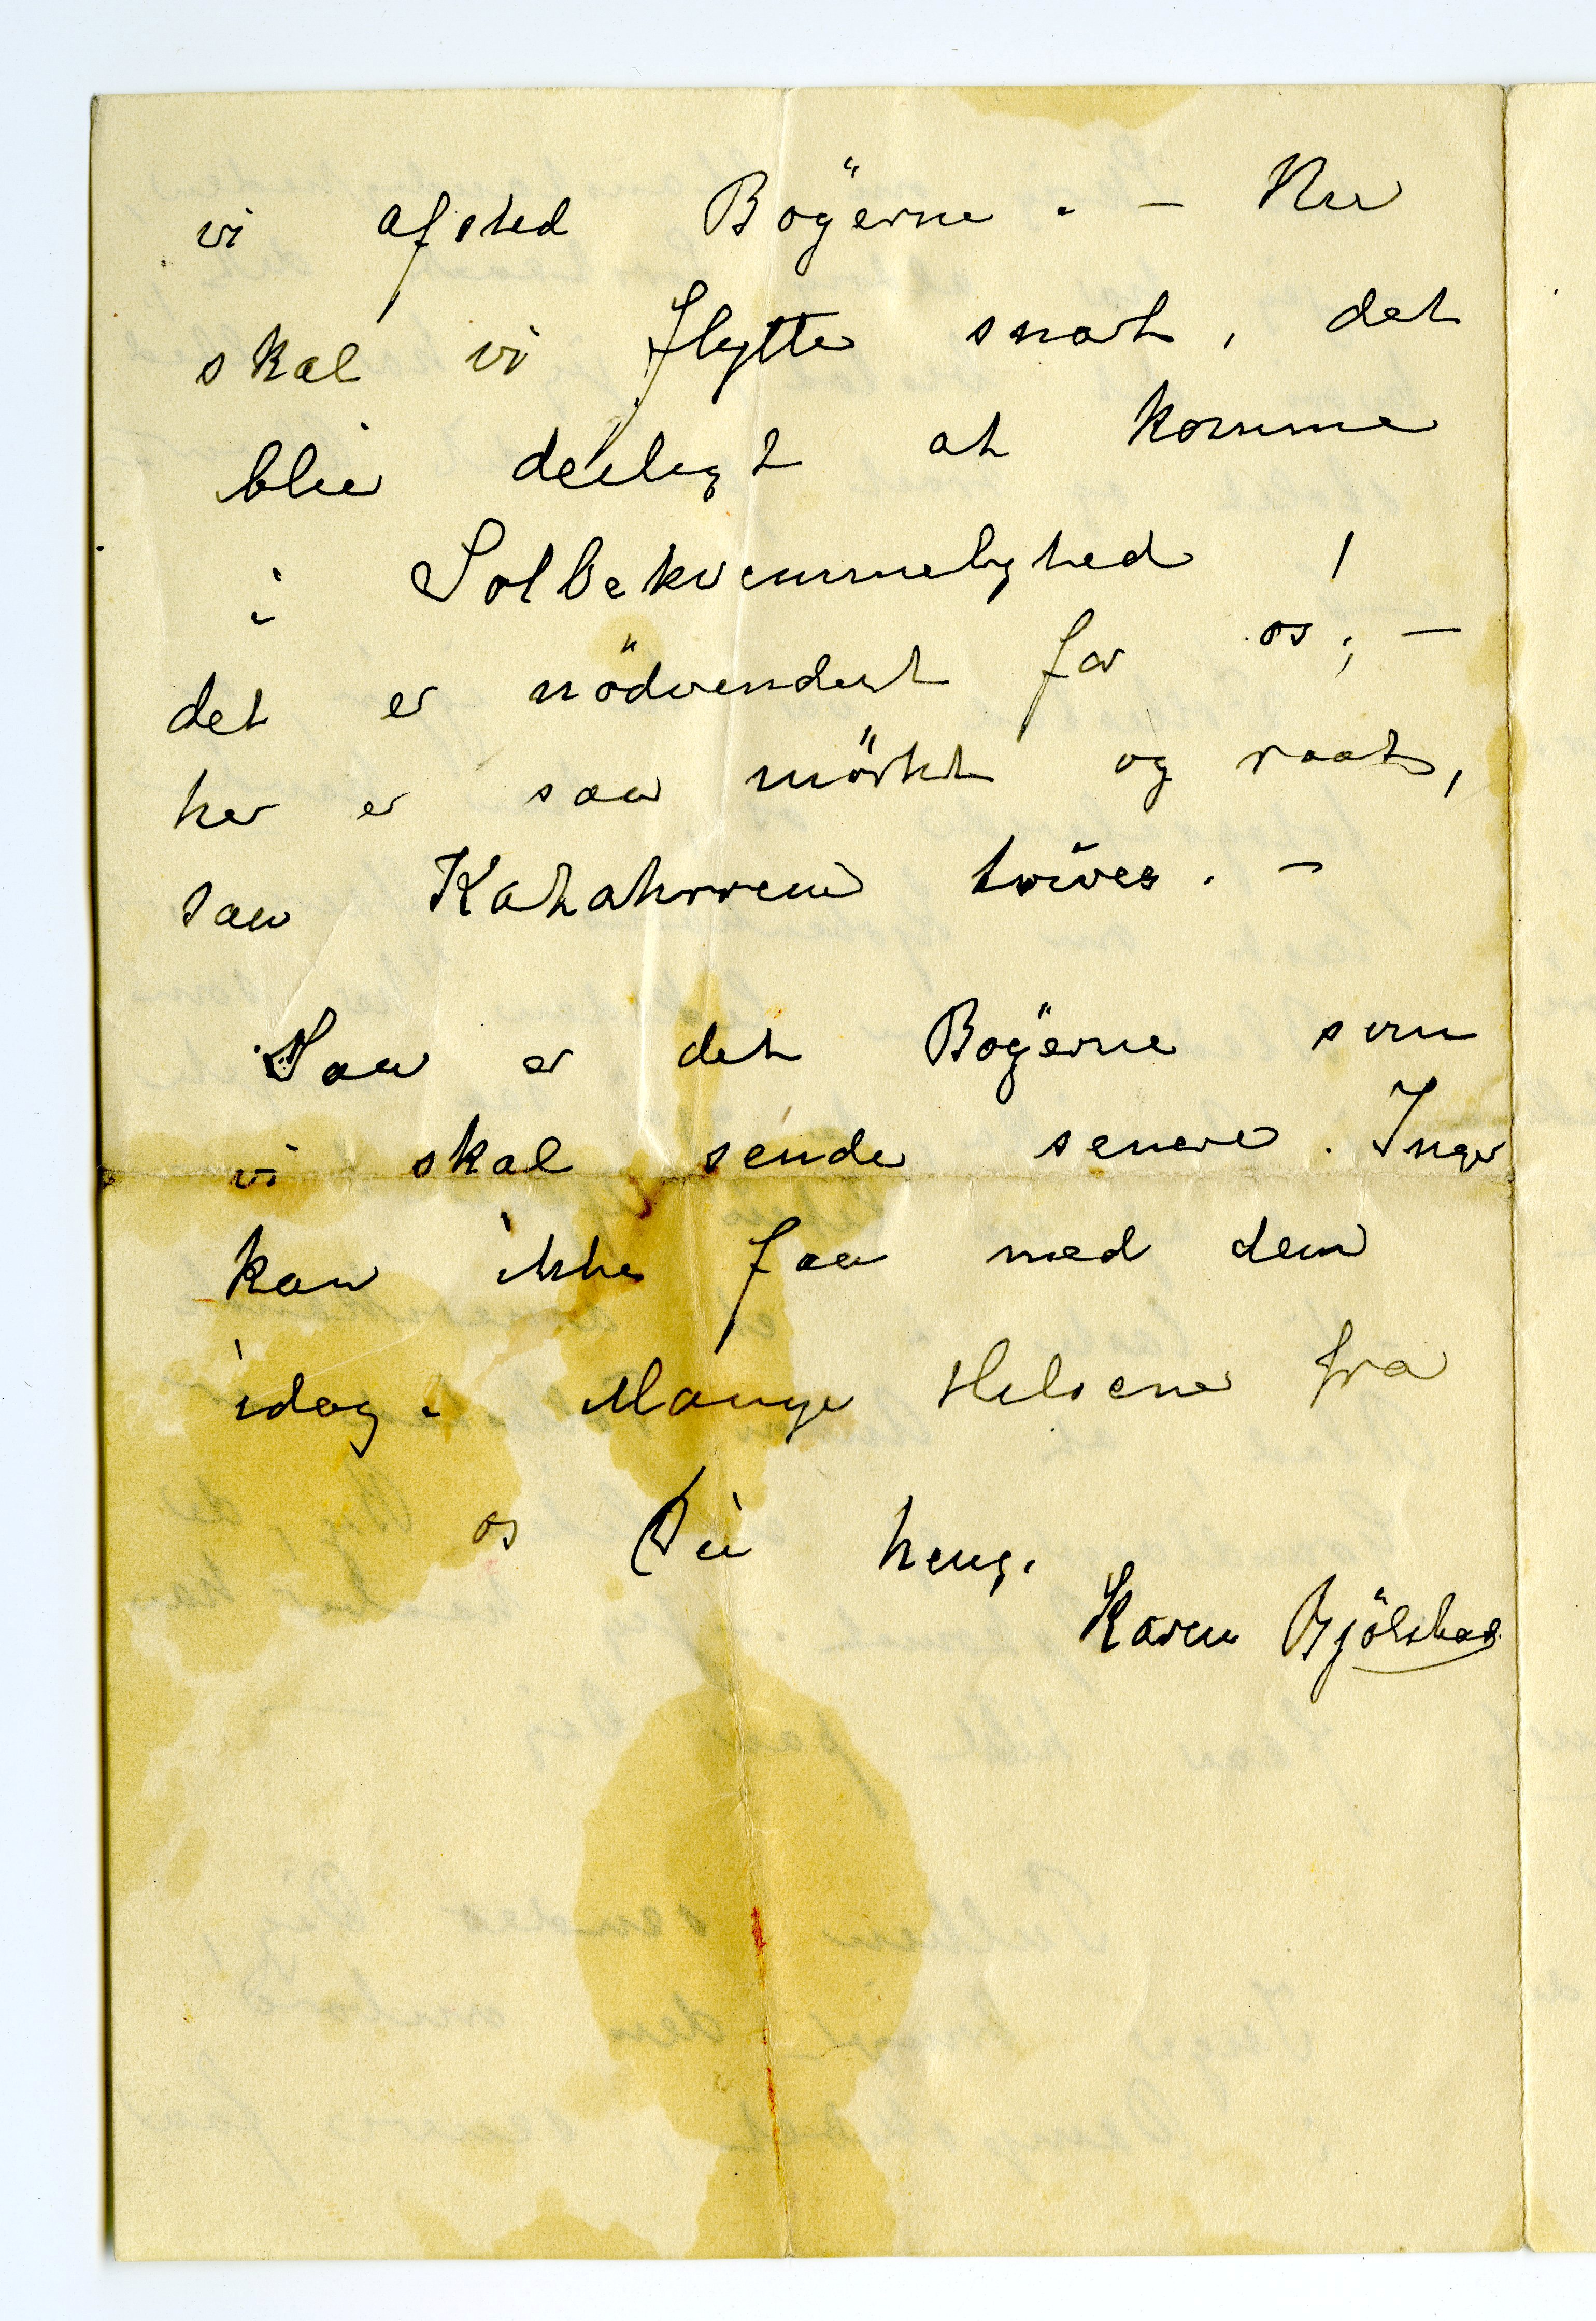 vi afsted Bøgerne. - Nu
skal vi flytte snart, det
blir deiligt at komme
i Solbekvemmelighed!
det er nödvendigt for os; -
her er saa mörkt og raat,
saa Katahrren trives. -
Saa er det Bøgerne som
vi skal sende senere. Inger
kan ikke faa med dem
idag. Mange Hilsener fra
os Din heng.
Karen